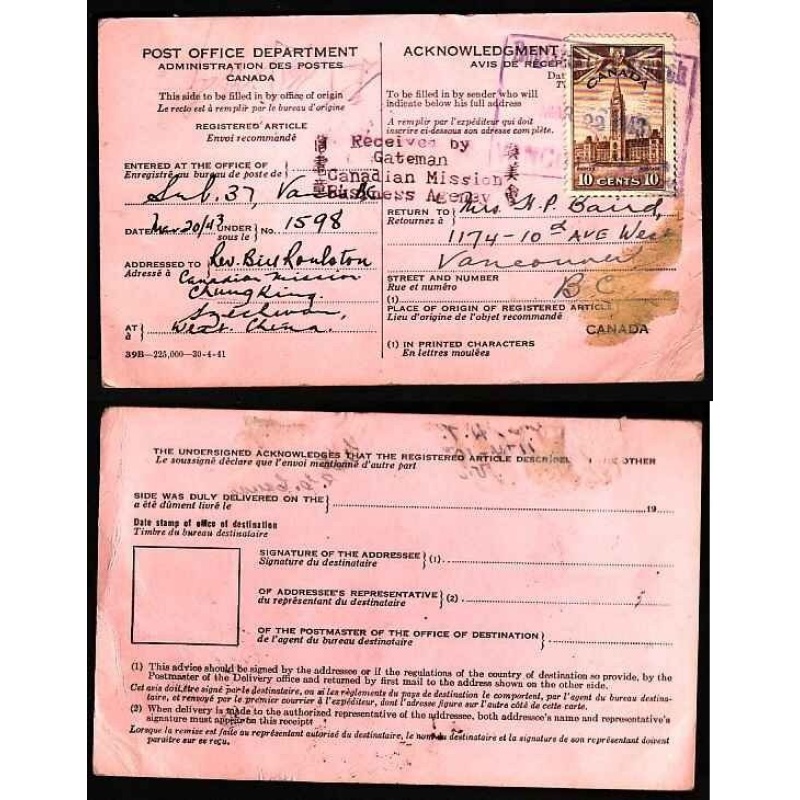 POST OFFICE DEPARTMENT
ADMINISTRATION DES POSTES
CANADA
This side to be filled in by office of origin
Le recto est à remplir par le bureau d'origine
REGISTERED ARTICLE
Envoi recommandé
ENTERED AT THE OFFICE OF
Enregistré au bureau de poste de
Sub. 37, Van. BC
DATE Mar 20/43 UNDER No. 1598
sous le
ADDRESSED TO Rev. Bill Roulston
Adressé à Canadian Mission
Chung King.
Szechwan,
AT West China.
à
39B—225,000—30-4-41
ACKNOWLEDGMENT
AVIS DE RÉCEP
Dat
To be filled in by sender who will
indicate below his full address
A remplir par l'expéditeur qui doit
inscrire ci-dessous son adresse complète.
Received by
Gateman
Canadian Mission
Business Agency
CANADA
POSTES
10 CENTS 10
22 43
RETURN TO Mrs. H.P. Baird,
Retournez à
1174-10th AVE West
Vancouver
STREET AND NUMBER
Rue et numéro
(1) B.C.
PLACE OF ORIGIN OF REGISTERED ARTICLE
Lieu d'origine de l'objet recommandé
CANADA
(1) IN PRINTED CHARACTERS
En lettres moulées
THE UNDERSIGNED ACKNOWLEDGES THAT THE REGISTERED ARTICLE DESCRIBED THE OTHER
Le soussigné déclare que l'envoi mentionné d'autre part
SIDE WAS DULY DELIVERED ON THE 19
a été dûment livré le
Date stamp of office of destination
Timbre du bureau destinataire
SIGNATURE OF THE ADDRESSEE (1)
Signature du destinataire
OF ADDRESSEE'S REPRESENTATIVE (2)
du représentant du destinataire
OF THE POSTMASTER OF THE OFFICE OF DESTINATION
de l'agent du bureau destinataire
(1) This advice should be signed by the addressee or if the regulations of the country of destination so provide, by the
Postmaster of the Delivery office and returned by first mail to the address shown on the other side.
Cet avis doit être signé par le destinataire, ou si les règlements du pays de destination le comportent, par l'agent du bureau destina-
taire, et renvoyé par le premier courrier à l'expéditeur, dont l'adresse figure sur l'autre côté de cette carte.
(2) When delivery is made to the authorized representative of the addressee, both addressee's name and representative's
signature must appear on this receipt.
Lorsque la remise est faite au représentant autorisé du destinataire, le nom du destinataire et la signature de son représentant doivent
paraître sur se reçu.